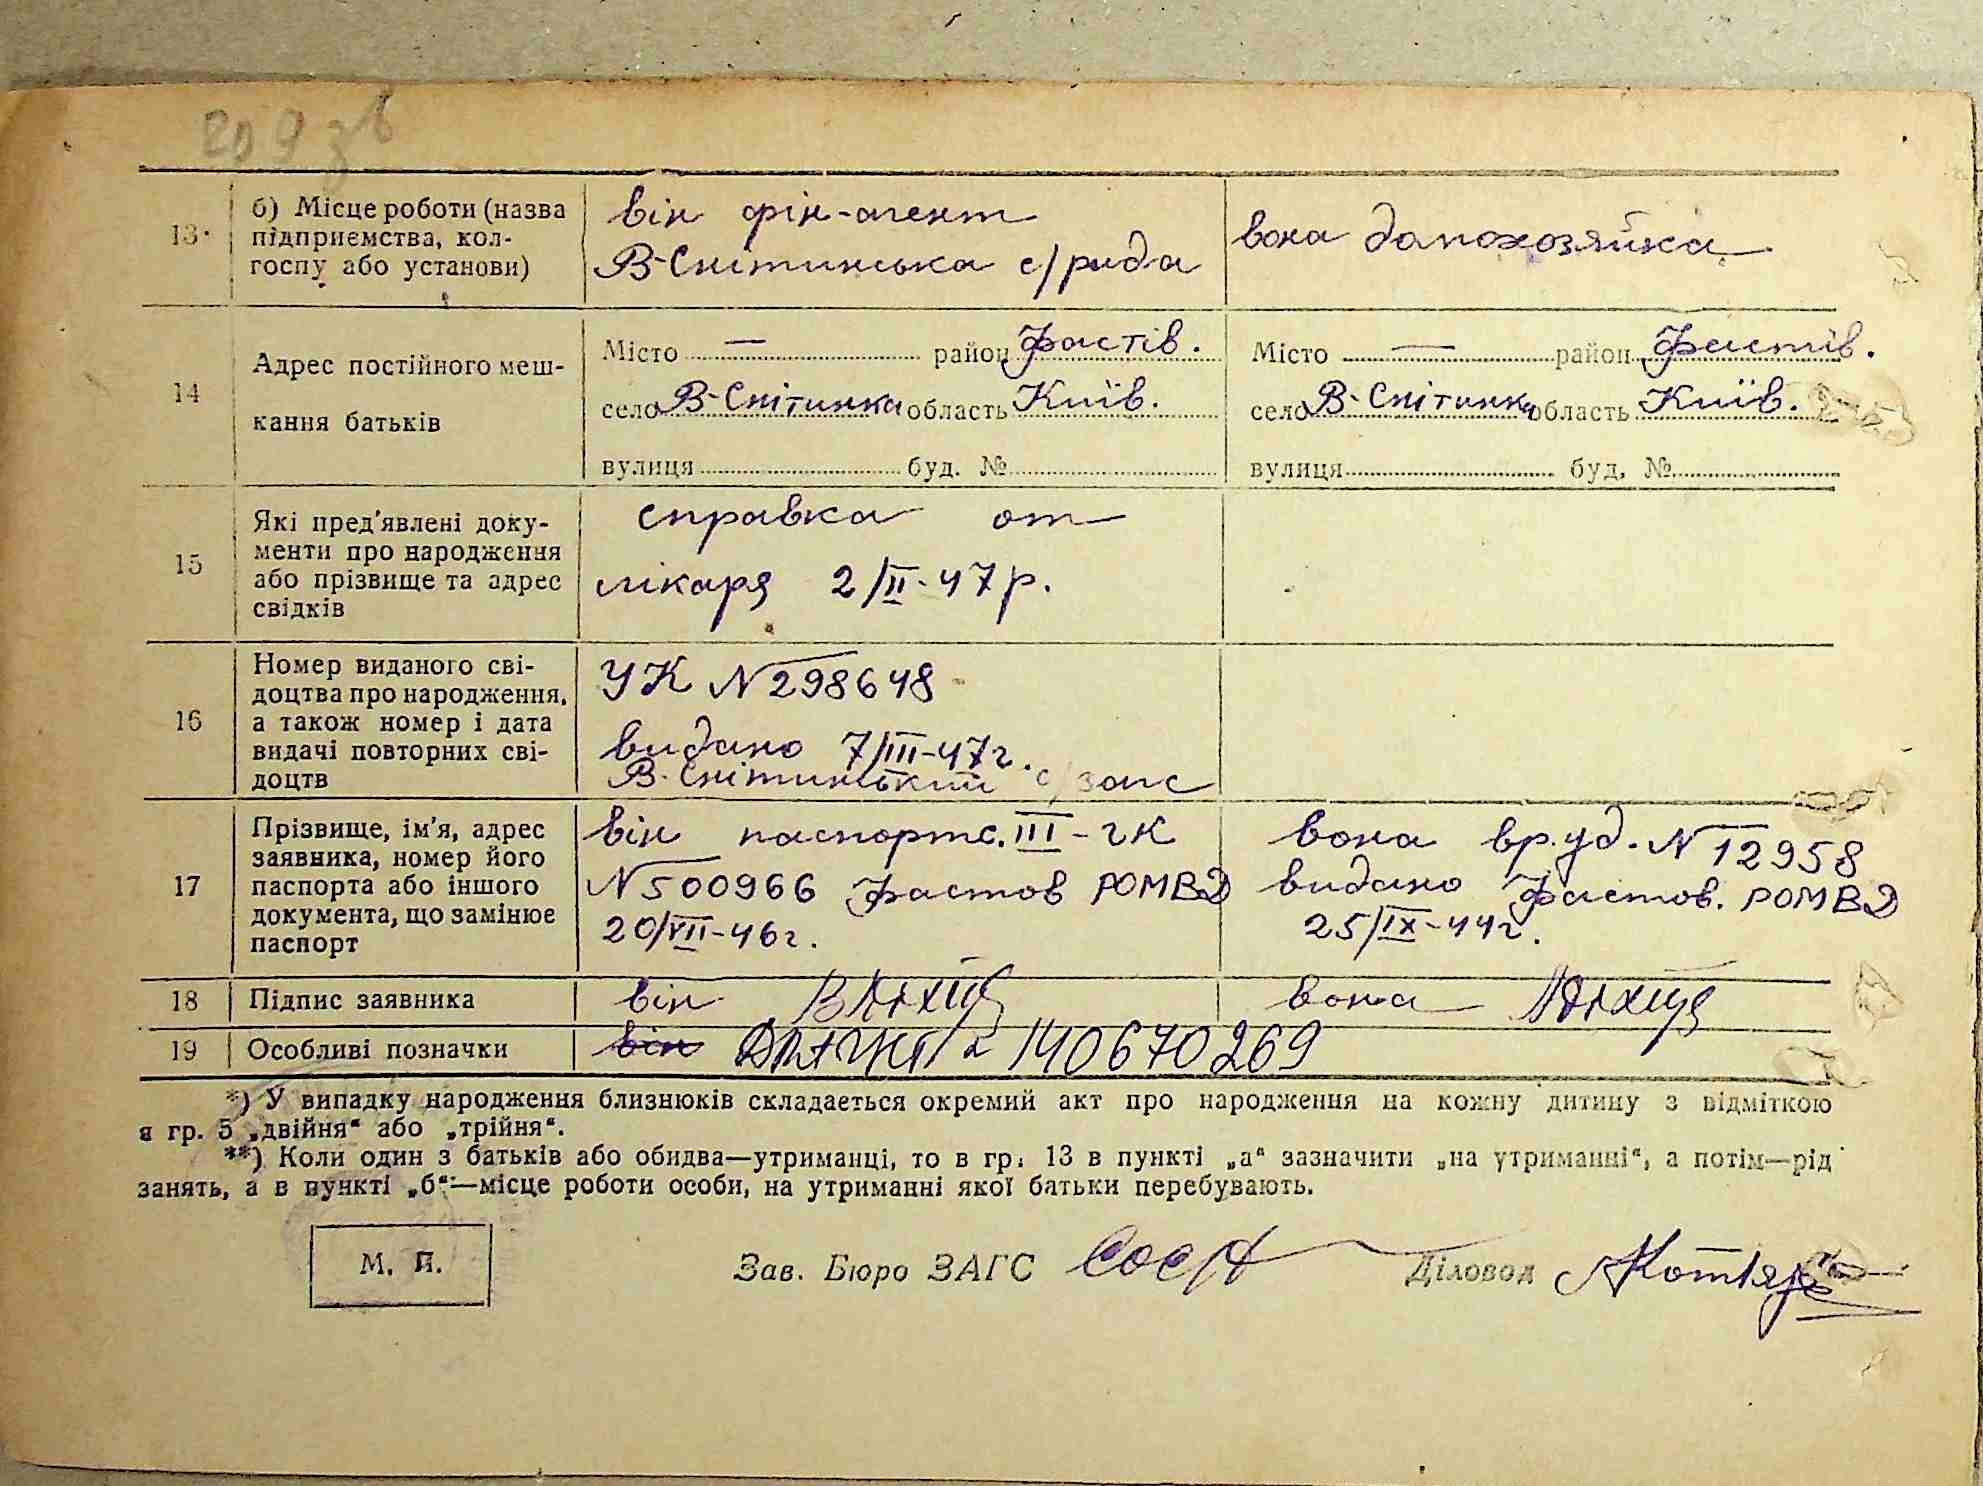 209 зв
13.
б) Місце роботи (назва
підприємства, кол-
госпу або установи)
він фін-агент
В-Снітинська с/рада
вона домохозяйка
14
Адрес постійного меш-
кання батьків
Місто — район Фастів.
село В-Снітинка область Київ.
вулиця буд. №
Місто — район Фастів.
село В-Снітинка область Київ.
вулиця буд. №
15
Які пред'явлені доку-
менти про народження
або прізвище та адрес
свідків
справка от
лікаря 2/II-47р.
16
Номер виданого сві-
доцтва про народження,
а також номер і дата
видачі повторних сві-
доцтв
УК N 298648
видано 7/III-47г.
В-Снітинський с/загс
17
Прізвище, ім'я, адрес
заявника, номер його
паспорта або іншого
документа, що замінює
паспорт
він паспортс. III-ЧК
N 500966 Фастов РОМВД
20/VII-46г.
вона вр.уд. N 12958
видано Фастов. РОМВД
25/IX-44г.
18
Підпис заявника
він
вона
19
Особливі позначки
він 140670269
*) У випадку народження близнюків складається окремий акт про народження на кожну дитину з відміткою
в гр. 5 „двійня“ або „трійня“.
**) Коли один з батьків або обидва—утриманці, то в гр. 13 в пункті „а“ зазначити „на утриманні“, а потім—рід
занять, а в пункті „б“—місце роботи особи, на утриманні якої батьки перебувають.
М. П.
Зав. Бюро ЗАГС
Діловод